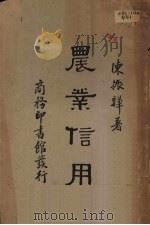 陳振驊著
農業信用
商務印書館發行